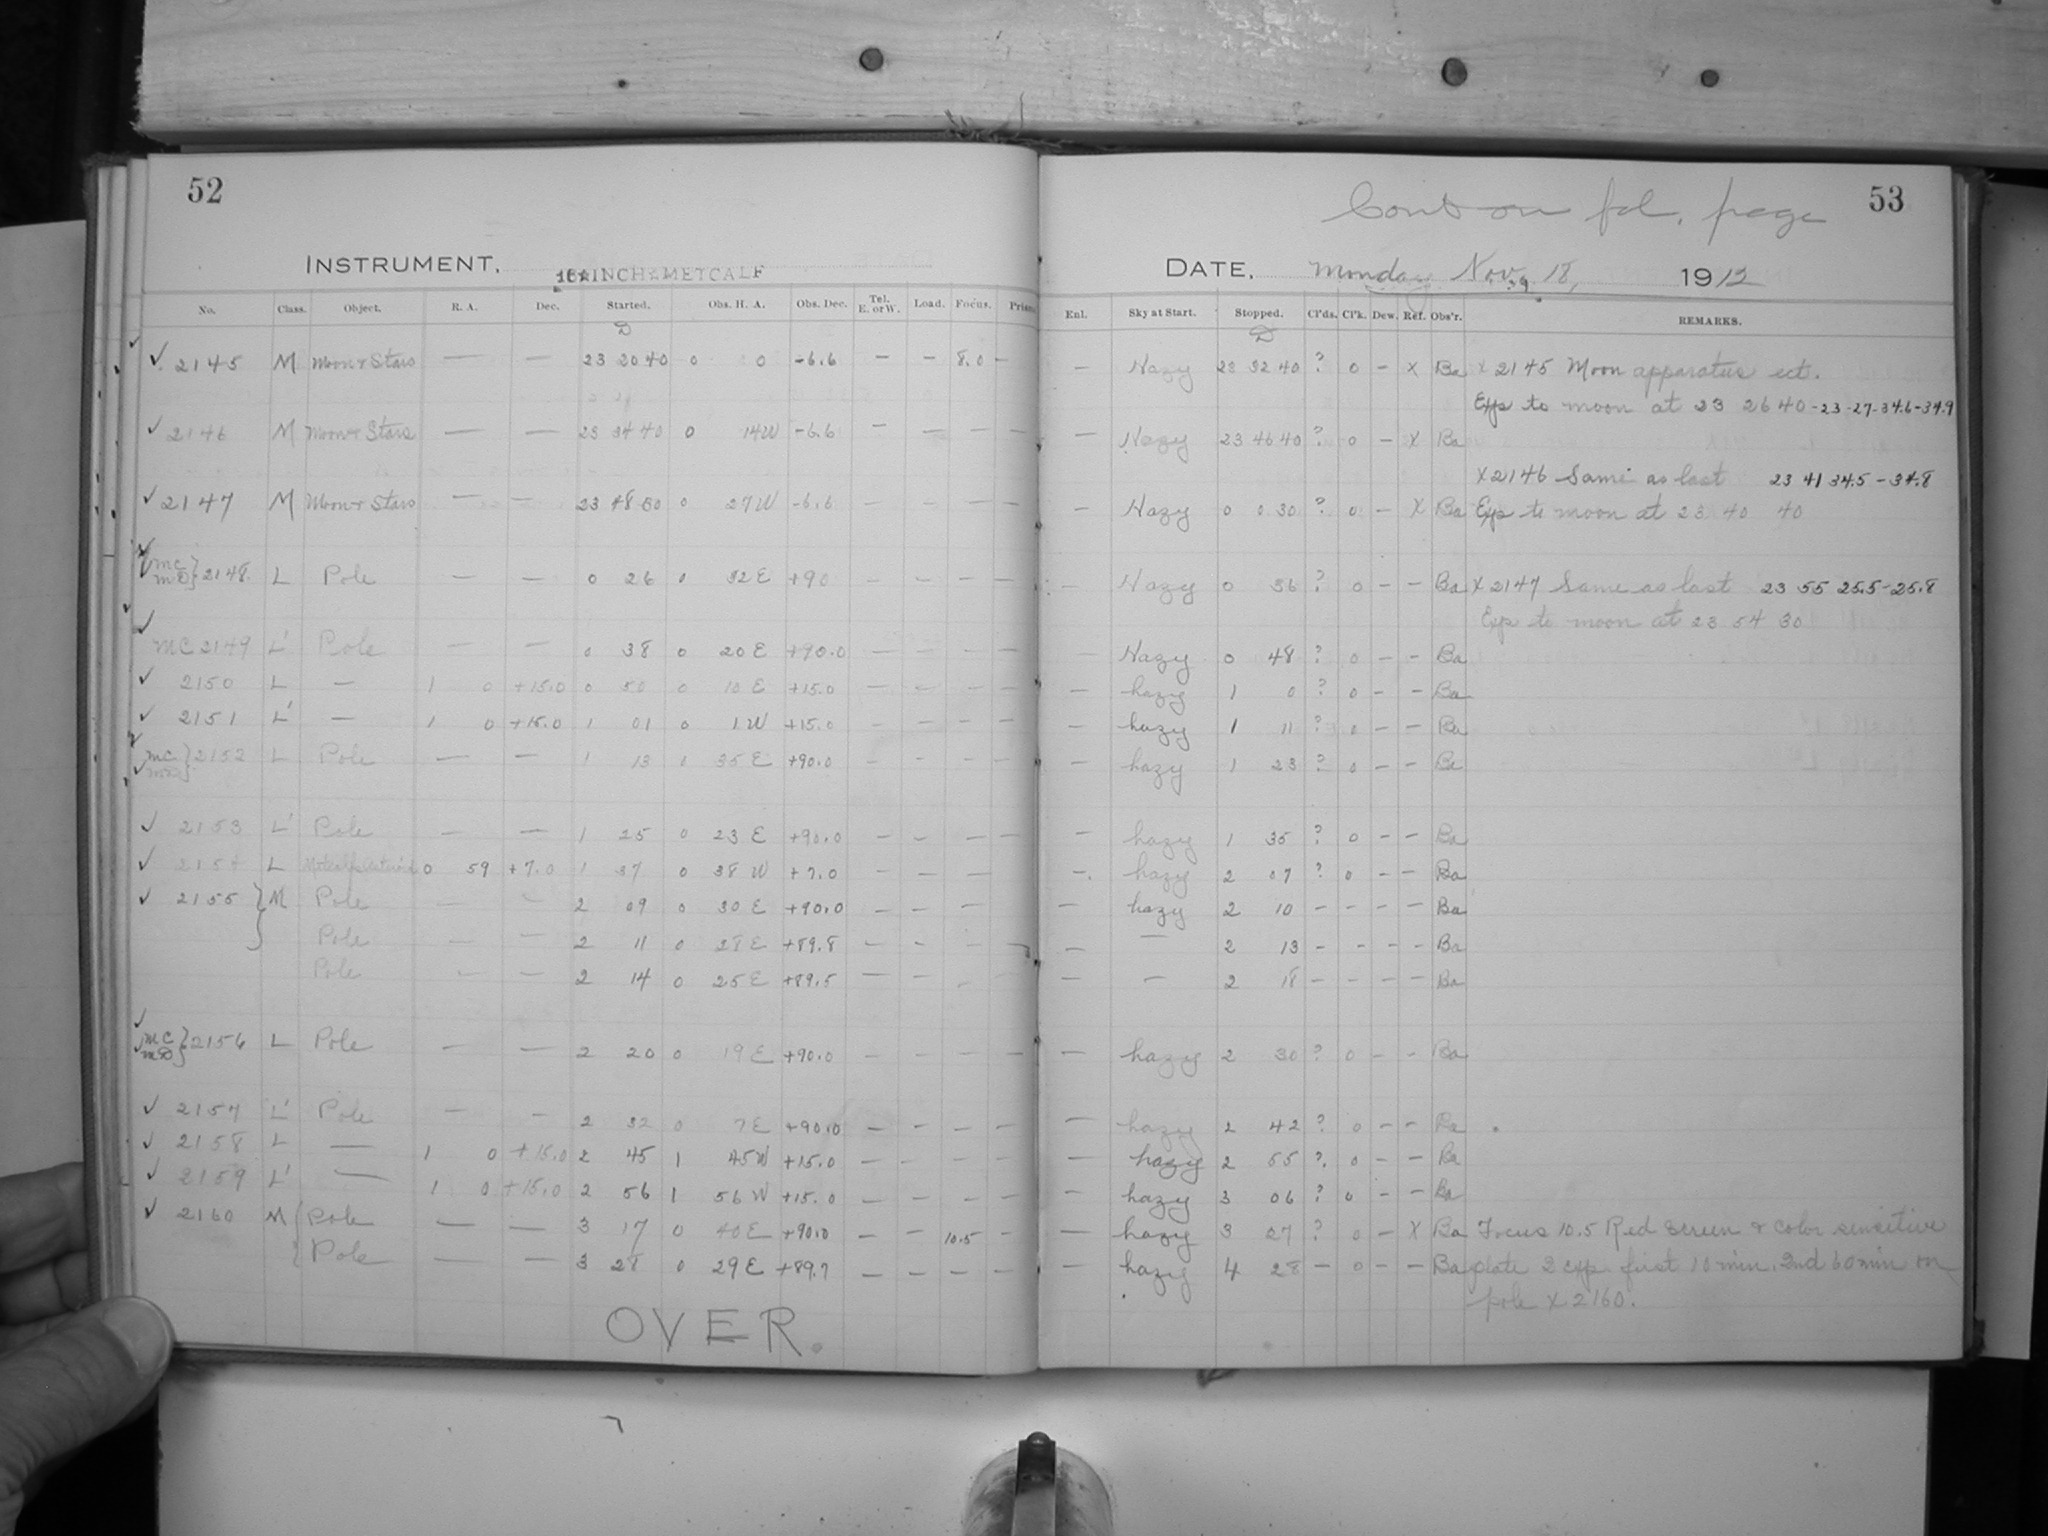 52
INSTRUMENT, 16 INCH METCALF
No. Class. Object. R. A. Dec. Started. Obs. H. A. Obs. Dec. Tel. E. or W. Load. Focus. Prism
D
✓ 2145 M Moon & Stars — — 23 20 40 0 0 -6.6 — — 8.0 —
✓ 2146 M Moon & Stars — — 23 34 40 0 14W -6.6 — — — —
✓ 2147 M Moon & Stars — — 23 48 30 0 27W -6.6 — — — —
✓ MC MD } 2148 L Pole — — 0 26 0 32E +90 — — — —
✓ MC 2149 L' Pole — — 0 38 0 20E +90.0 — — — —
✓ 2150 L — 1 0 +15.0 0 50 0 10E +15.0 — — — —
✓ 2151 L' — 1 0 +15.0 1 01 0 1W +15.0 — — — —
✓ MC MD } 2152 L Pole — — 1 13 0 35E +90.0 — — — —
✓ 2153 L' Pole — — 1 25 0 23E +90.0 — — — —
✓ 2154 L 0 59 +7.0 1 37 0 38W +7.0 — — — —
✓ 2155 } M Pole — — 2 09 0 30E +90.0 — — — —
Pole — — 2 11 0 28E +89.8 — — — —
Pole — — 2 14 0 25E +89.5 — — — —
✓ MC MD } 2156 L Pole — — 2 20 0 19E +90.0 — — — —
✓ 2157 L' Pole — — 2 32 0 7E +90.0 — — — —
✓ 2158 L — 1 0 +15.0 2 45 1 45W +15.0 — — — —
✓ 2159 L' — 1 0 +15.0 2 56 1 56W +15.0 — — — —
✓ 2160 M { Pole — — 3 17 0 40E +90.0 — — 10.5 —
{ Pole — — 3 28 0 29E +89.7 — — — —
OVER.
53
Cont on fol. page
DATE, Monday Nov. 18, 1912
Enl. Sky at Start. Stopped. Cl'ds. Cl'k. Dew. Ref. Obs'r. REMARKS.
D
— Hazy 23 32 40 ? 0 — X Ba X 2145 Moon apparatus ect.
Exp to moon at 23 26 40 -23-27-34.6-34.9
— Hazy 23 46 40 ? 0 — X Ba
X 2146 Same as last 23 41 34.5-34.8
— Hazy 0 0 30 ? 0 — X Ba Exp to moon at 23 40 40
— Hazy 0 36 ? 0 — — Ba X 2147 Same as last 23 55 25.5-25.8
Exp to moon at 23 54 30
— Hazy 0 48 ? 0 — — Ba
— hazy 1 0 ? 0 — — Ba
— hazy 1 11 ? 0 — — Ba
— hazy 1 23 ? 0 — — Ba
— hazy 1 35 ? 0 — — Ba
— hazy 2 07 ? 0 — — Ba
— hazy 2 10 — — — — Ba
— — 2 13 — — — — Ba
— — 2 18 — — — — Ba
— hazy 2 30 ? 0 — — Ba
— hazy 2 42 ? 0 — — Ba
— hazy 2 55 ? 0 — — Ba
— hazy 3 06 ? 0 — — Ba
— hazy 3 27 ? 0 — X Ba Focus 10.5 Red screen & color sensitive
— hazy 4 28 — 0 — — Ba plate 2 exp. first 10 min. 2nd 60 min on
pole X 2160.